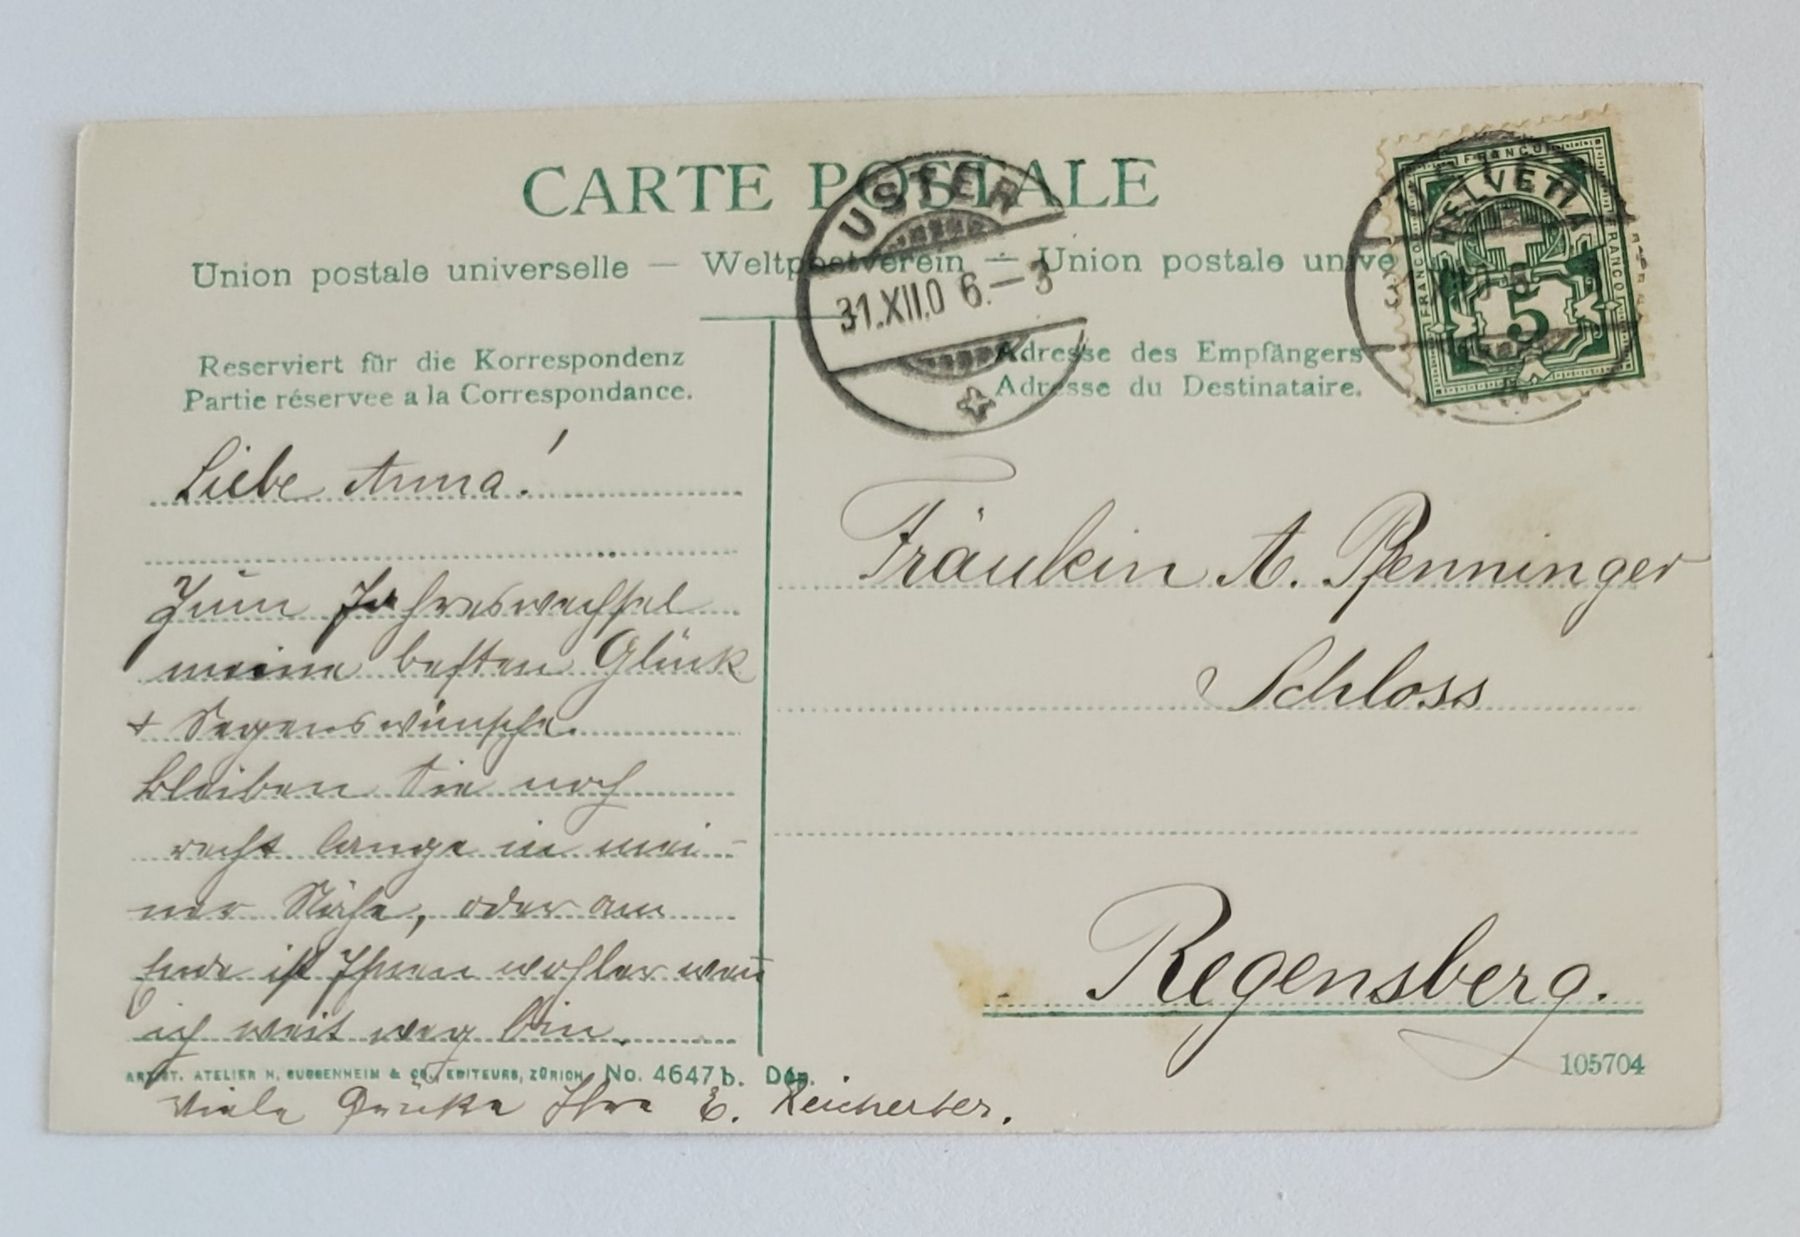 CARTE POSTALE
Union postale universelle — Weltpostverein — Union postale unive
USTER
31.XII.0 6.—3
FRANCO
HELVETIA
FRANCO
FRANCO
5
Reserviert für die Korrespondenz
Partie réservee a la Correspondance.
Adresse des Empfängers
Adresse du Destinataire.
Liebe Anna!
Zum Jahreswechsel
meine besten Glück
+ Segenswünsche.
Bleiben Sie noch
recht lange in mei-
ner Nähe, oder am
Ende ist Ihnen wohler wen̄
ich weit weg bin.
Viele Grüsse Ihre E.
Fräulein A. Pfenninger
Schloss
Regensberg.
ARTIST. ATELIER H. GUGGENHEIM & CO., EDITEURS, ZÜRICH No. 4647 b. Dép.
105704